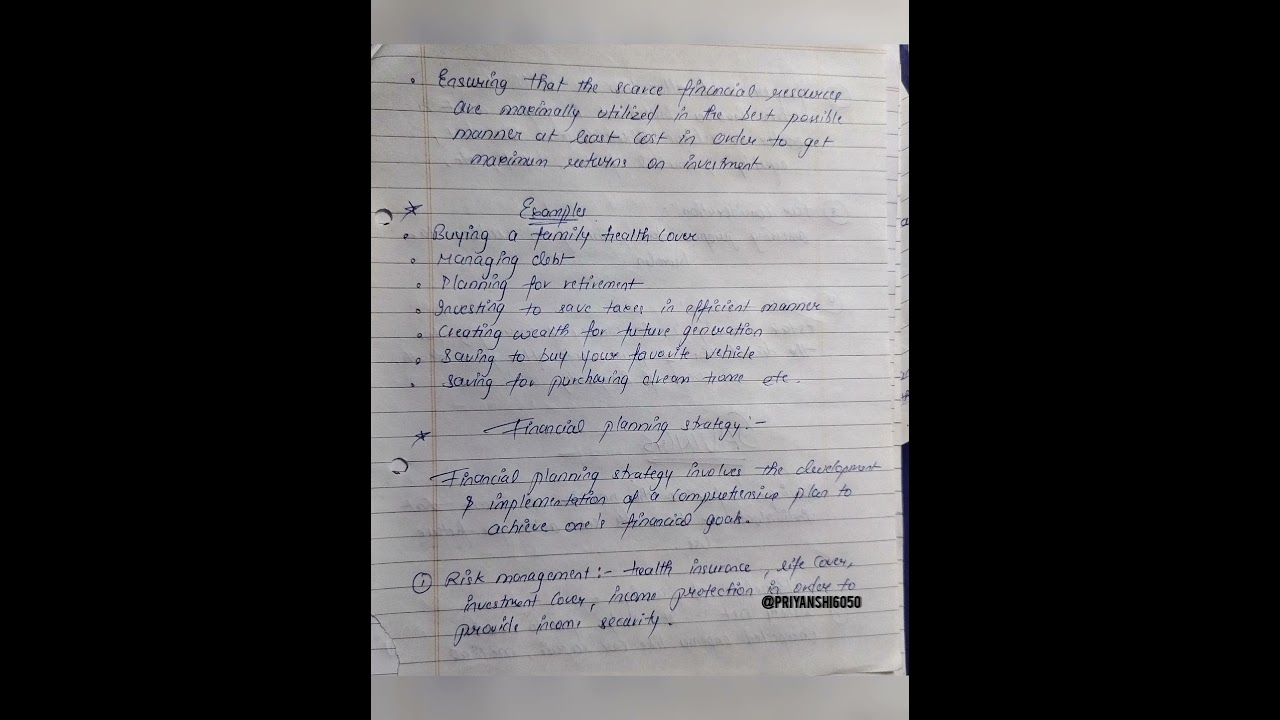 • Ensuring that the scarce financial resources
are maximally utilized in the best possible
manner at least cost in order to get
maximum returns on investment.
★ Examples
• Buying a family health cover
• Managing debt
• Planning for retirement
• Investing to save taxes in efficient manner
• Creating wealth for future generation
• Saving to buy your favorite vehicle
• Saving for purchasing dream home etc.
★ Financial planning strategy:-
Financial planning strategy involves the development
& implementation of a comprehensive plan to
achieve one's financial goals.
① Risk management:- health insurance, life cover,
investment cover, income protection in order to
@PRIYANSHI6050
provide income security.